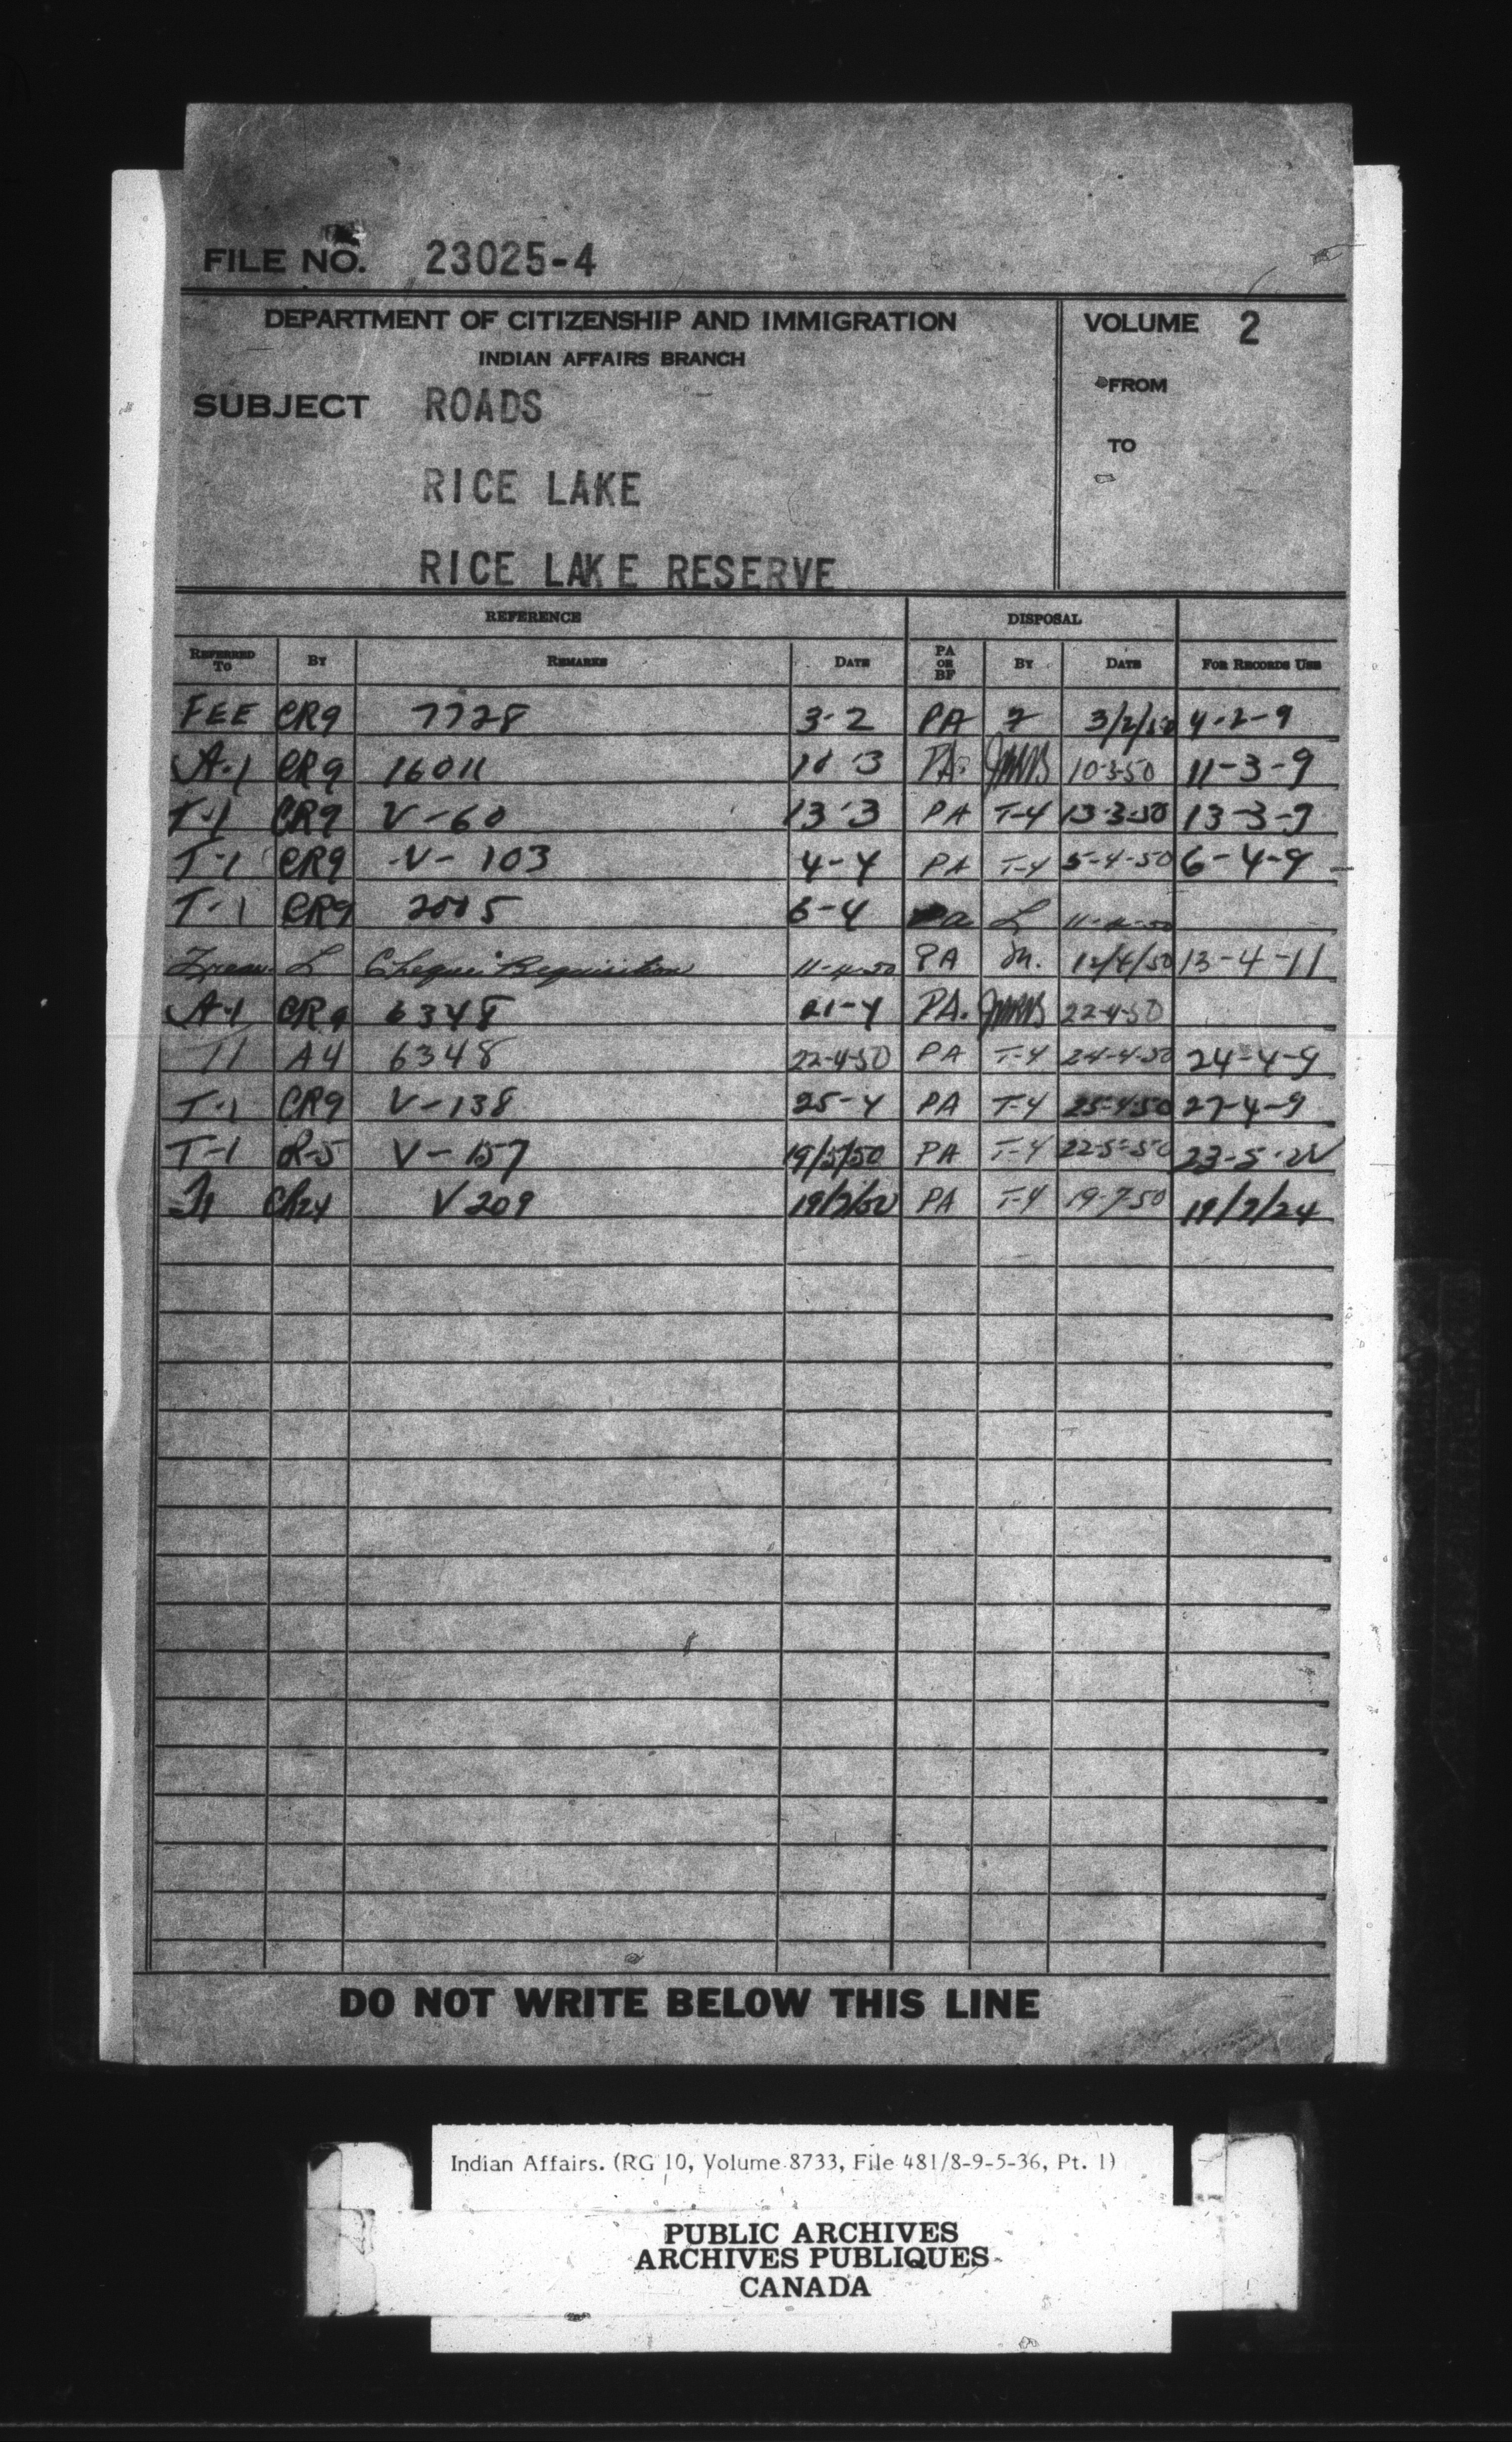 FILE NO. 23025-4
DEPARTMENT OF CITIZENSHIP AND IMMIGRATION
INDIAN AFFAIRS BRANCH
VOLUME 2
FROM
TO
SUBJECT ROADS
RICE LAKE
RICE LAKE RESERVE
REFERENCE DISPOSAL
REFERRED TO BY REMARKS DATE PA OR BF BY DATE FOR RECORDS USE
FEE CR9 7728 3-2 PA 3/2/50 4-2-9
A-1 CR9 16011 10 3 PA. 10-3-50 11-3-9
T-1 CR9 V-60 13-3 PA T-4 13-3-50 13-3-9
T-1 CR9 V-103 4-4 PA T-4 5-4-50 6-4-9
T-1 CR9 2005 6-4 Pa L 11-4-50
Treas. L Cheque Requisition 11-4-50 PA M. 12/4/50 13-4-11
A-1 CR9 6348 21-4 PA. 22-4-50
T1 A4 6348 22-4-50 PA T-4 24-4-50 24-4-9
T-1 CR9 V-138 25-4 PA T-4 25-4-50 27-4-9
T-1 R-5 V-157 19/5/50 PA T-4 22-5-50 23-5-
CR24 V 209 19/7/50 PA T-4 19-7-50 19/7/24
DO NOT WRITE BELOW THIS LINE
Indian Affairs. (RG 10, Volume 8733, File 481/8-9-5-36, Pt. 1)
PUBLIC ARCHIVES
ARCHIVES PUBLIQUES
CANADA